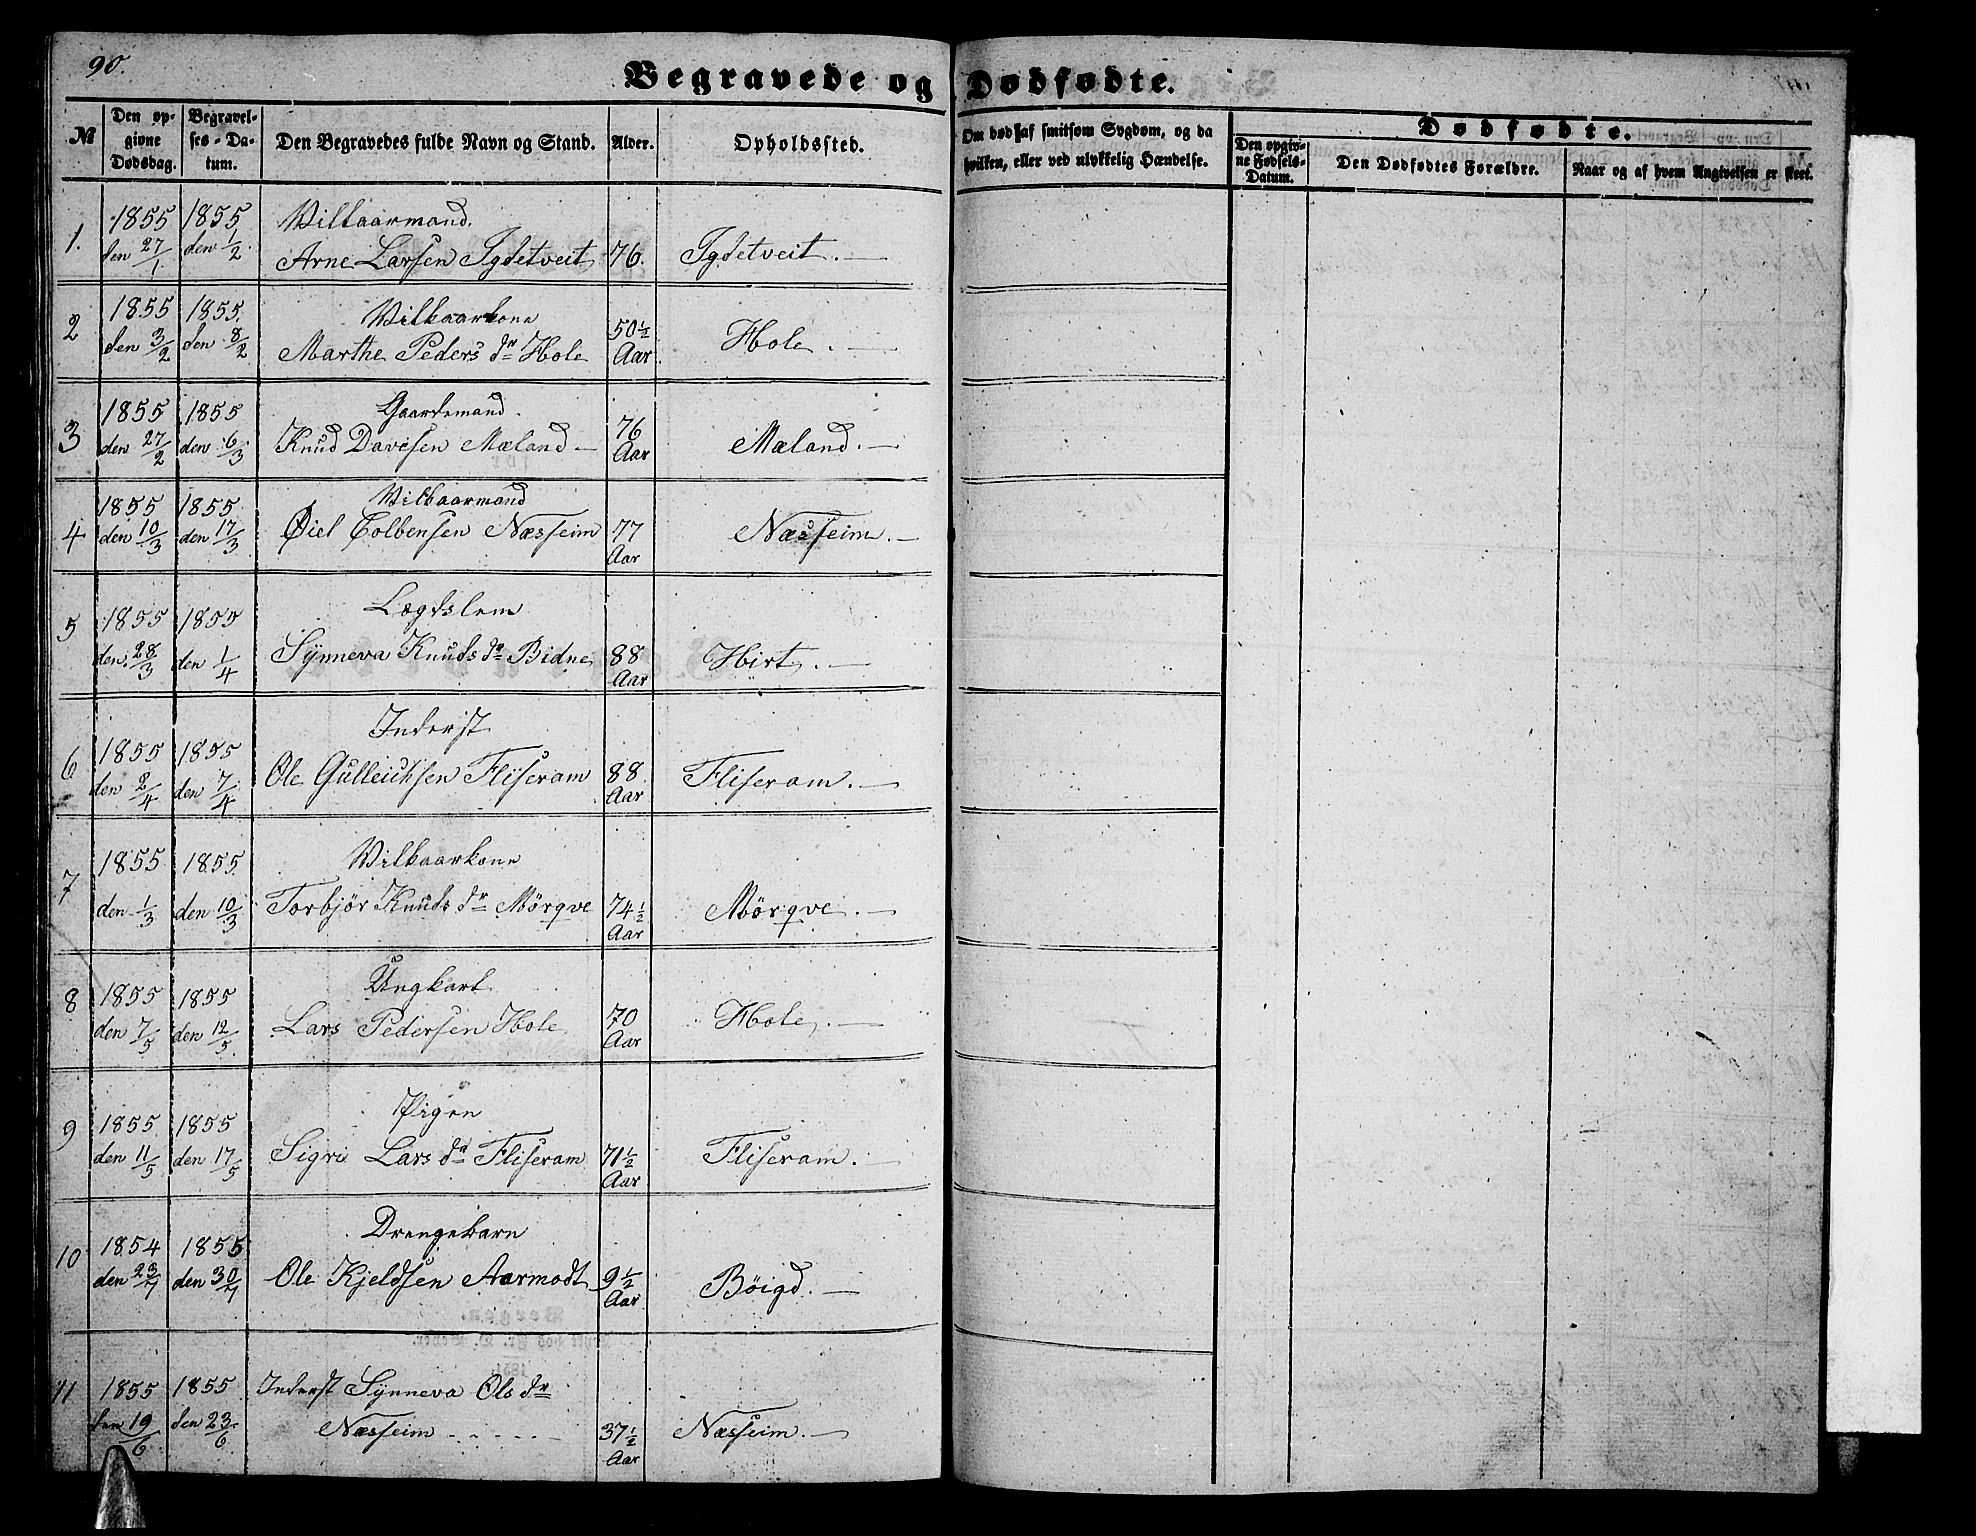 90.
Begravede og Dødfødte.
№
Den op-
givne
Dødsdag.
Begravel-
ses-Da-
tum.
Den Begravedes fulde Navn og Stand.
Alder.
Opholdssted.
Om død af smitsom Sygdom, og da
hvilken, eller ved ulykkelig Hændelse.
Dødfødte.
Den opgiv-
ne Fødsels-
Datum.
Den Dødfødtes Forældre.
Naar og af hvem Angivelsen er skeet.
1. 1855 1855 Vilkaarmand.
den 27/1 den 1/2 Arne Larsen Igdetveit 76. Igdetveit.—
2 1855 1855. Vilkaarkone
den 3/2 den 8/2 Marthe Peders dr Hole 50½ Aar Hole.—
3 1855 1855 Gaardmand.
den 27/2 den 6/3 Knud Davesen Mæland— 76 Aar Mæland.—
4 1855 1855 Vilkaarmand
den 10/3 den 17/3 Øiel Colbensen Næsseim 77 Aar Næsseim.—
5 1855 1855 Lægdslem
den 28/3 den 1/4 Synneva Knuds dr Bidne 88 Aar Hirt.—
6 1855 1855 Inderst
den 2/4 den 7/4 Ole Gulleichsen Fliseram 88 Aar Fliseram.—
7 1855 1855. Vilkaarkone
den 1/3 den 10/3 Torbjør Knuds dr Mørqve 74½ Aar Mørqve.—
8 1855 1855 Ungkarl
den 7/5 den 12/5 Lars Pedersen Hole 70 Aar Hole.—
9 1855 1855 Pigen
den 11/5 den 17/5 Sigri Lars dr Fliseram 71½ Aar Fliseram.—
10 1854 1855 Drengebarn
den 23/7 den 30/7 Ole Kjeldsen Aarmodt 9½ Aar Bøigd.—
11 1855 1855 Inderst Synneva Ols dr
den 19/6 den 23/6. Næsseim 37½ Aar Næsseim.—